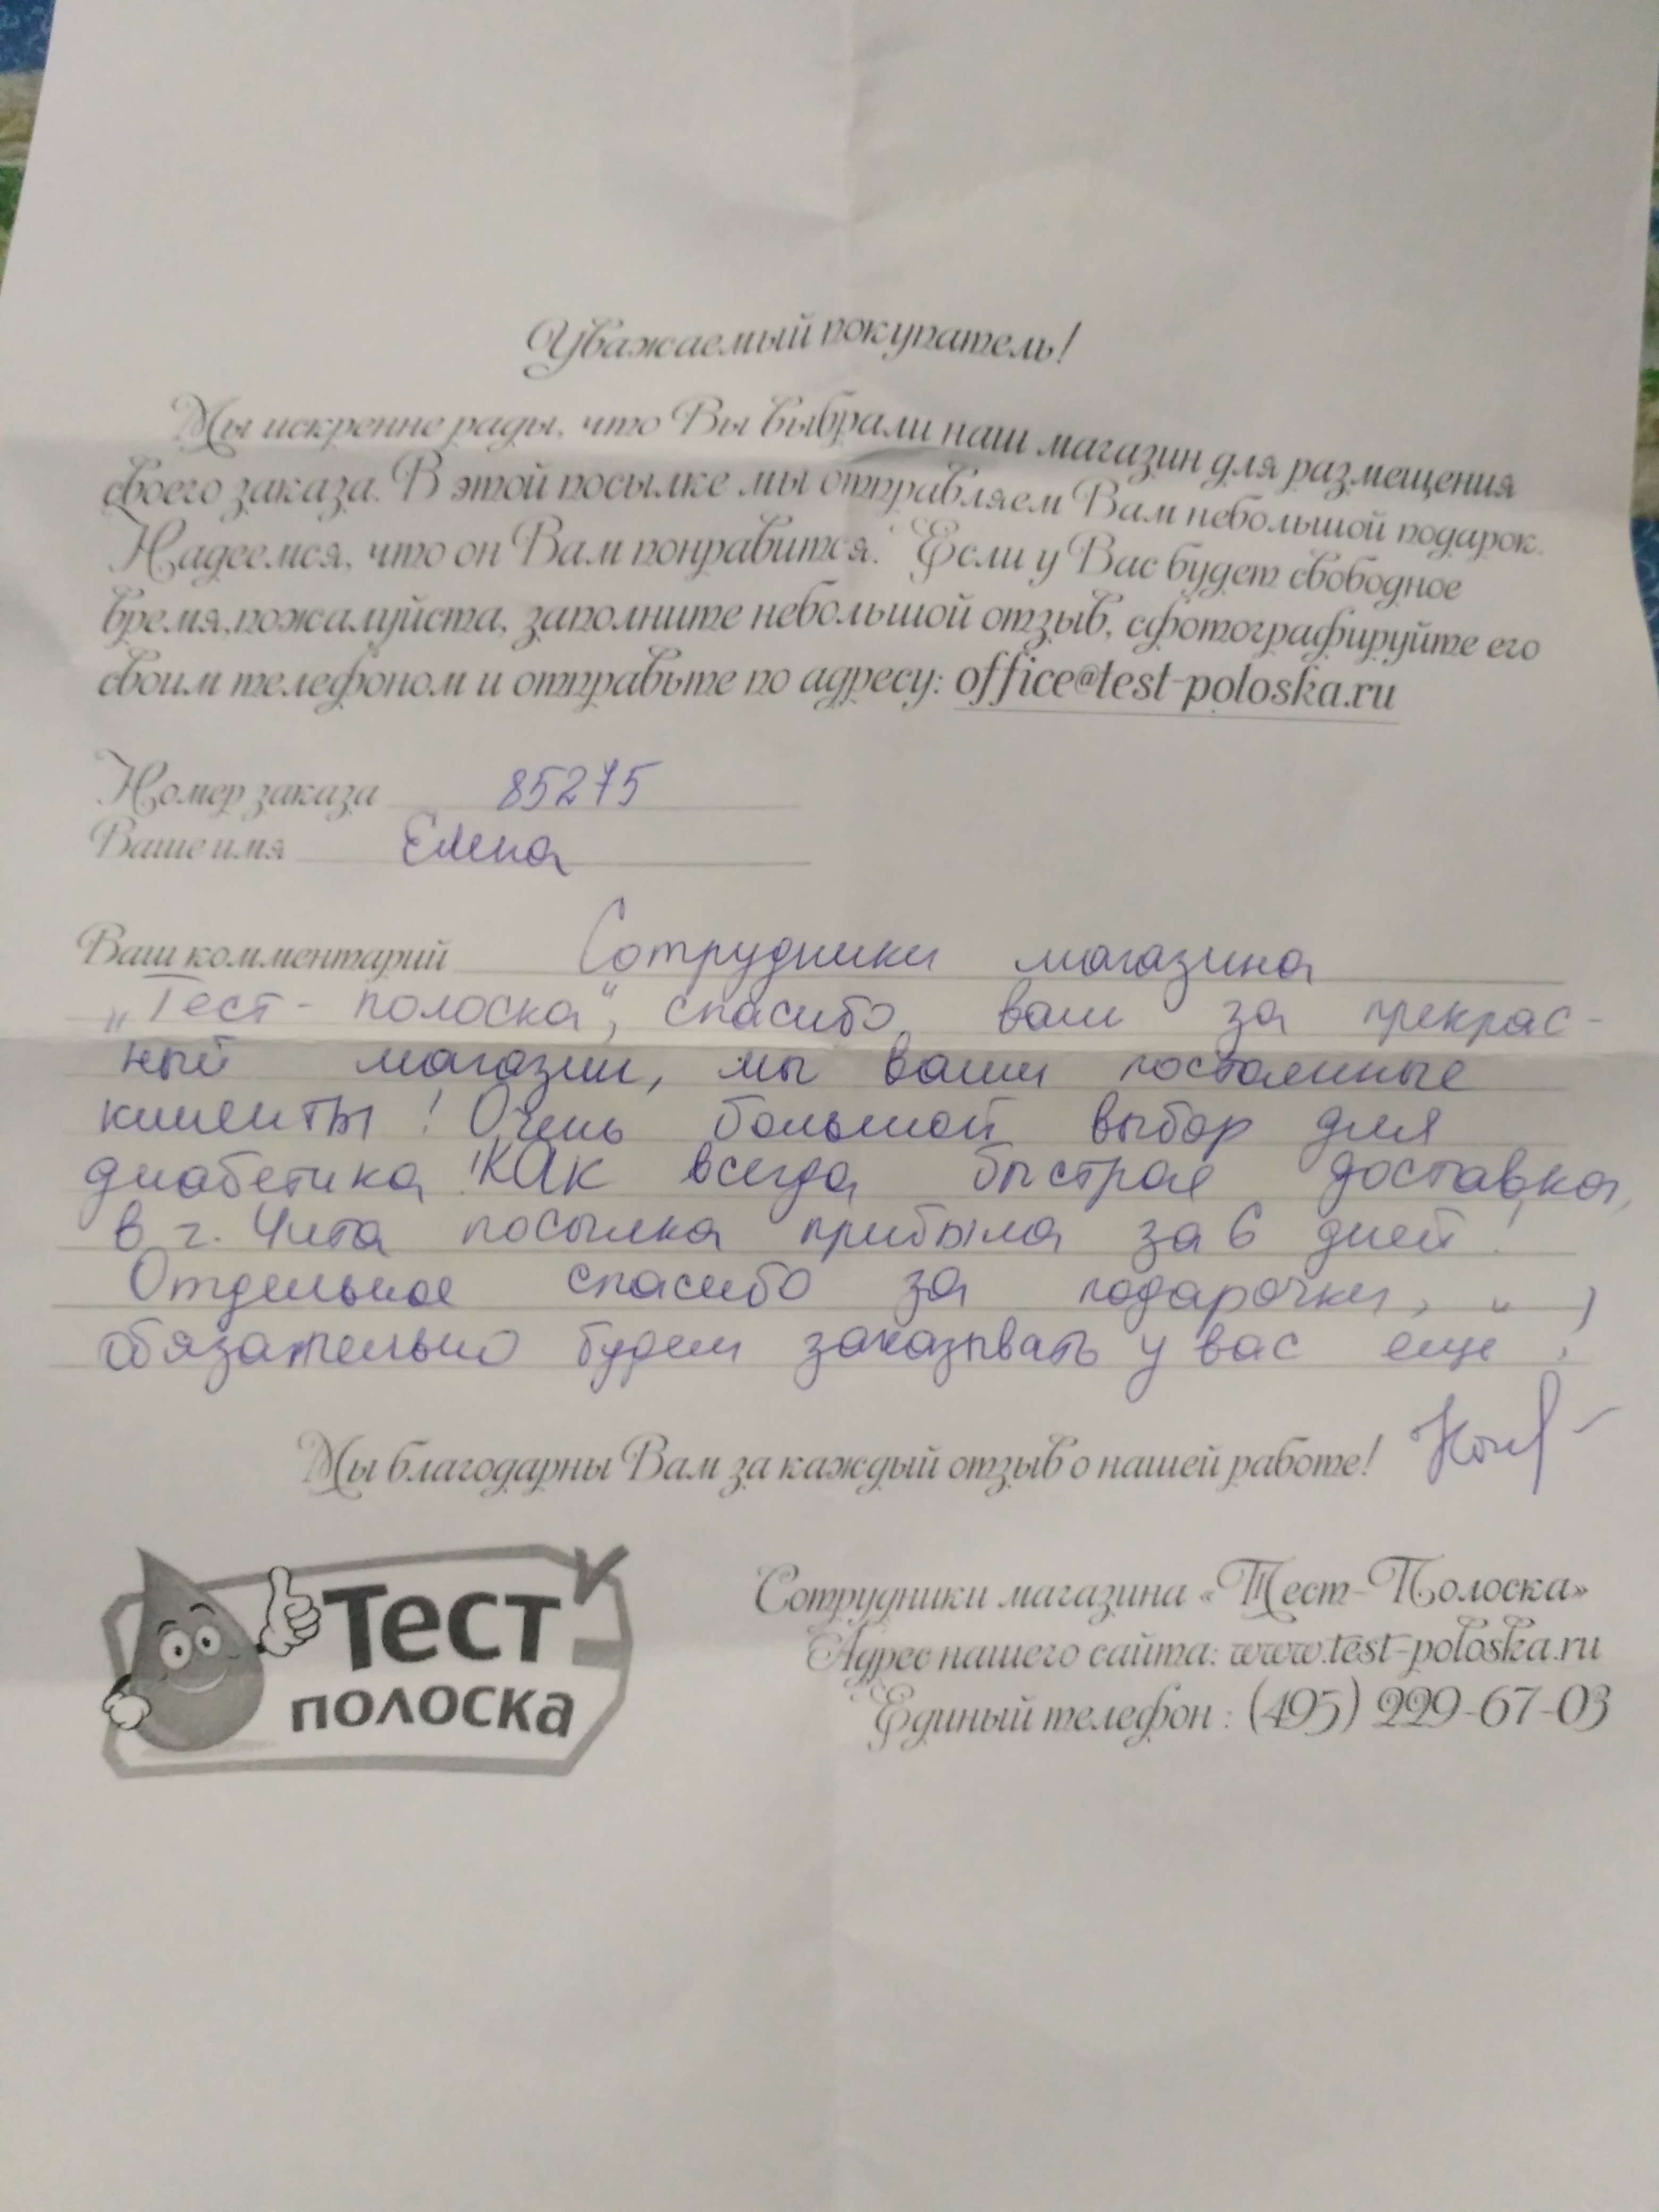 Уважаемый покупатель!
Мы искренне рады, что Вы выбрали наш магазин для размещения
своего заказа. В этой посылке мы отправляем Вам небольшой подарок.
Надеемся, что он Вам понравится. Если у Вас будет свободное
время,пожалуйста, заполните небольшой отзыв, сфотографируйте его
своим телефоном и отправьте по адресу: office@test-poloska.ru
Номер заказа 85275
Ваше имя Елена
Ваш комментарий Сотрудники магазина
„Тест-полоска“, спасибо вам за прекрас-
ный магазин, мы ваши постоянные
клиенты! Очень большой выбор для
диабетика! КАК всегда быстрая доставка,
в г. Чита посылка прибыла за 6 дней!
Отдельное спасибо за подарочки,
обязательно будем заказывать у вас ещё!
Мы благодарны Вам за каждый отзыв о нашей работе!
Тест
полоска
Сотрудники магазина «Тест-Полоска»
Адрес нашего сайта: www.test-poloska.ru
Единый телефон : (495) 229-67-03